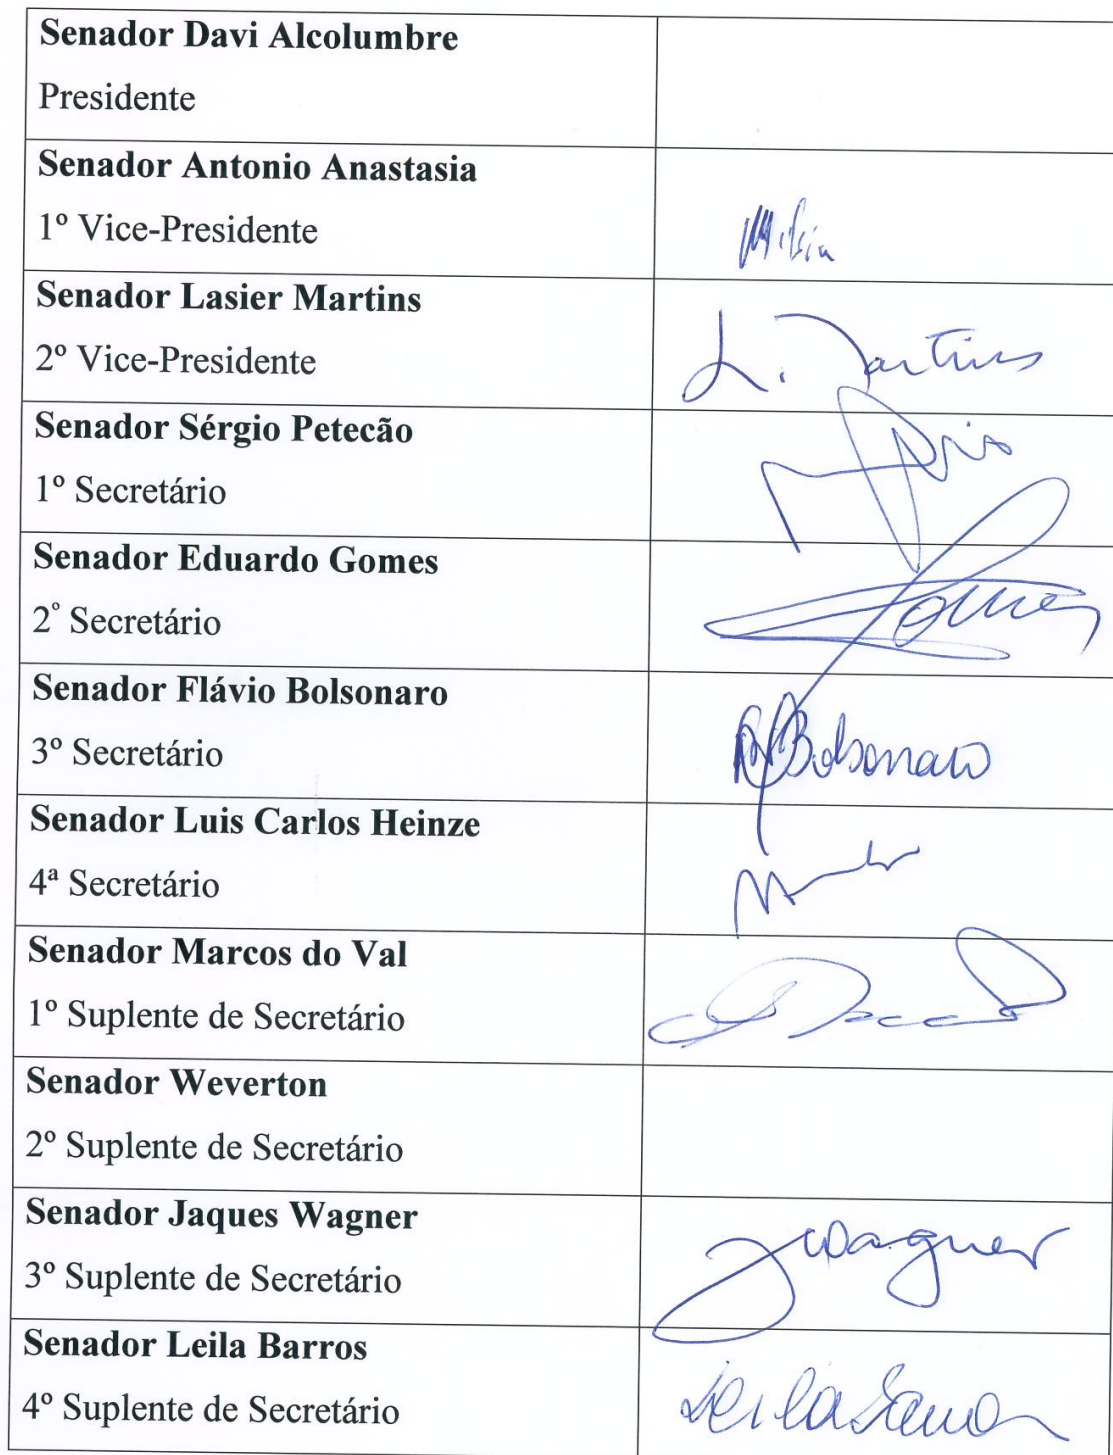 Senador Davi Alcolumbre
Presidente
Senador Antonio Anastasia
1º Vice-Presidente
Senador Lasier Martins
2º Vice-Presidente
L. Martins
Senador Sérgio Petecão
1º Secretário
Senador Eduardo Gomes
2º Secretário
Gomes
Senador Flávio Bolsonaro
3º Secretário
Bolsonaro
Senador Luis Carlos Heinze
4ª Secretário
Senador Marcos do Val
1º Suplente de Secretário
Senador Weverton
2º Suplente de Secretário
Senador Jaques Wagner
3º Suplente de Secretário
JWagner
Senador Leila Barros
4º Suplente de Secretário
Leila Barros